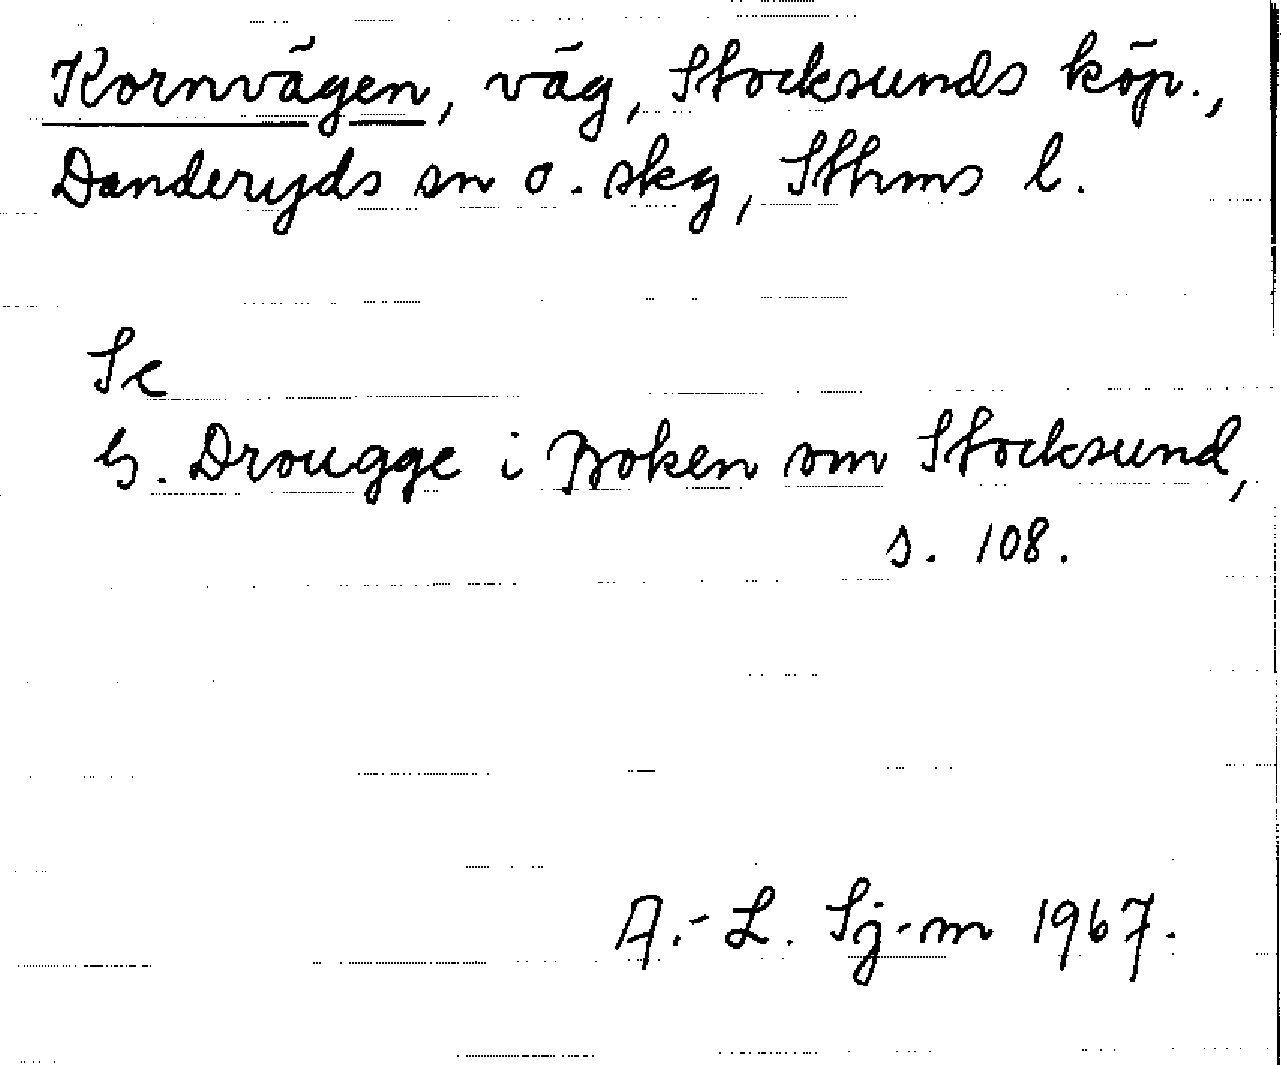 Kornvägen, väg, Stocksunds köp.,
Danderyds sn o. skg, Sthms l.
Se
G. Drougge i Boken om Stocksund,
s. 108.
A.-L. Sj-m 1967.